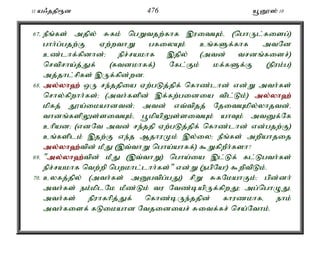 11 யஃததிரூன 476 யூனுஸ் 10
67. நீங்கள் அதில் சுகம் பெறுவதற்காக இரவையும், (பொருட்களைப்)
பார்ப்பதற்கு ஏற்றவாறு பகலையும் உங்களுக்காக அவனே
உண்டாக்கினான்; நிச்சயமாக இதில் (அவன் வசனங்களைச்)
செவிசாய்த்துக் (கவனமாகக்) கேட்கும் மக்களுக்கு (நிரம்ப)
அத்தாட்சிகள் இருக்கின்றன.
68. அல்லாஹ் ஒரு சந்ததியை ஏற்படுத்திக் கொண்டான் என்று அவர்கள்
சொல்கிறார்கள்; (அவர்களின் இக்கற்பனையை விட்டும்) அல்லாஹ்
மிகத் தூய்மையானவன்; அவன் எவ்விதத் தேவையுமில்லாதவன்.
வானங்களிலுள்ளவையும், பூமியிலுள்ளவையும் யாவும் அவனுக்கே
உரியன; (எனவே அவன் சந்ததி ஏற்படுத்திக் கொண்டான் என்பதற்கு)
உங்களிடம் இதற்கு எந்த ஆதாரமும் இல்லை; நீங்கள் அறியாததை
அல்லாஹ்வின் மீது (இவ்வாறு பொய்யாகக்) கூறுகிறீர்களா?
69. "அல்லாஹ்வின் மீது (இவ்வாறு) பொய்யை இட்டுக் கட்டுபவர்கள்
நிச்சயமாக வெற்றி பெறமாட்டார்கள்" என்று (நபியே!) கூறிவிடும்.
70. உலகத்தில் (அவர்கள் அனுபவிப்பது) சிறு சுகமேயாகும்; பின்னர்
அவர்கள் நம்மிடமே மீண்டும் வர வேண்டியிருக்கிறது; அப்பொழுது,
அவர்கள் நிராகரித்துக் கொண்டிருந்ததின் காரணமாக, நாம்
அவர்களைக் கடுமையான வேதனையைச் சுவைக்கச் செய்வோம்.